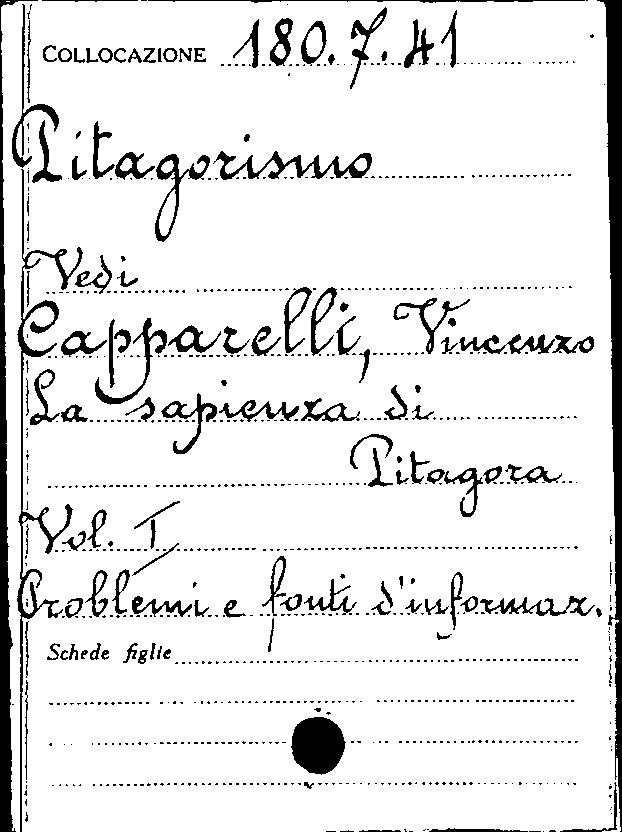 COLLOCAZIONE 180.7.41
Pitagorismo
Vedi
Capparelli, Vincenzo
La sapienza di
Pitagora
Vol. I
Problemi e fonti d'informaz.
Schede figlie